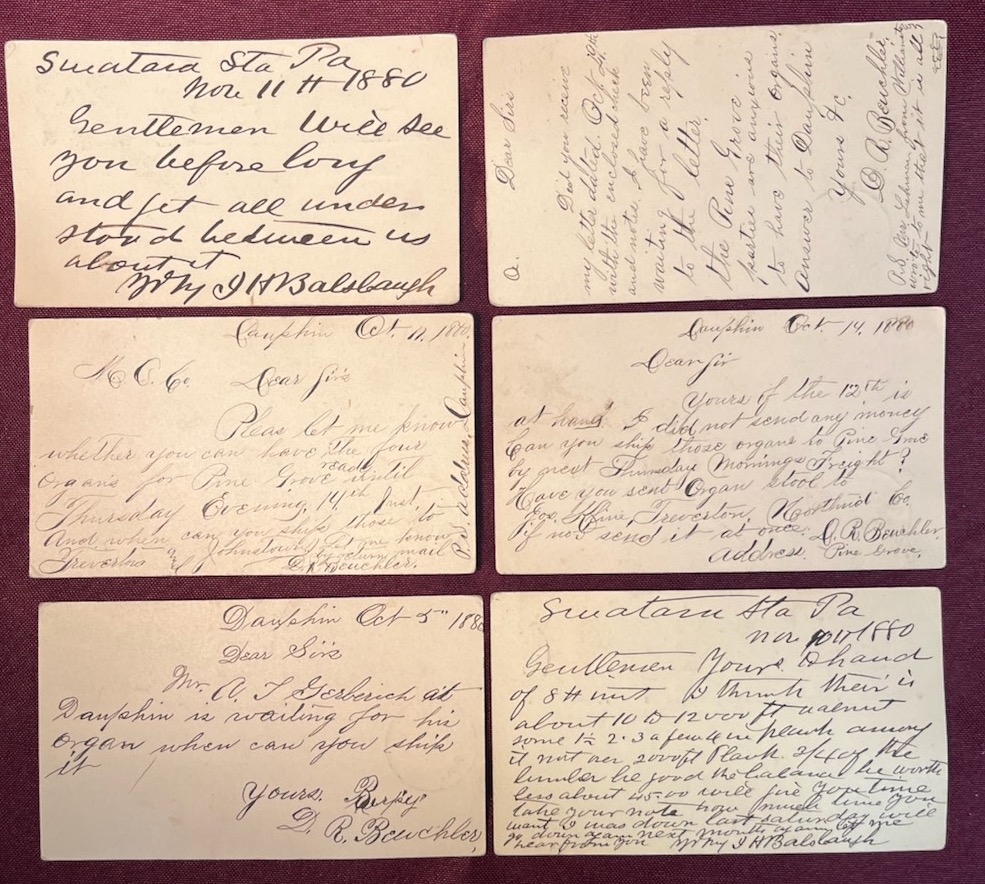 Swatara Sta Pa
Nov 11th 1880
Gentlemen Will see
you before long
and get all under
stood between us
about it
Yrs Try J H Balsbaugh
Dear Sir
Did you receive
my letter dated. Oct 28th
with the enclosed check
and notes. I have been
waiting for a reply
to the letter.
the Pine Grove
parties are anxious
to have their organs
Answer to Dauphin
Yours &c.
D. R. Beuchler.
P.S. Mr. Lehman from
writes to me that it is all
right
Dauphin Oct. 11, 1880.
M O. Co. Dear Sirs
Pleas let me know
whether you can have the four
ready
organs for Pine Grove until
Thursday Evening, 14th Inst,
And when can you ship those to
Treverton & Johnstown. Let me know
by return mail
D. R. Beuchler.
P.S. address. Dauphin
Dauphin Oct. 14, 1880
Dear Sir
Yours of the 12th is
at hand I did not send any money
Can you ship those organs to Pine Grove
by next Thursday Mornings Freight?
Have you sent Organ stool to
Jos. Kline, Treverton, Northmd Co.
if not send it at once. D. R. Beuchler,
address. Pine Grove,
Dauphin Oct 5th 1880
Dear Sirs
Mr. A. T Gerberich at
Dauphin is waiting for his
organ when can you ship
it
Yours. Resp'y
D. R. Beuchler,
Swatara Sta Pa
Nov 10th 1880
Gentlemen Yours to hand
of 8th inst I think their is
about 10 to 12000 ft walnut
some 1½ 2. 3 a few 4 in plank among
it not over 2000ft Plank. 3/4 of the
lumber be good the balance be worth
less about 45.00 will give you time
take your note how much time you
want I was down last saturday will
go down again next month
hear from you Yrs Try J H Balsbaugh